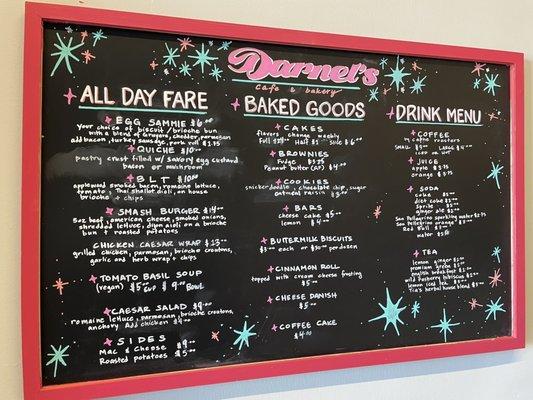 Darnel's
Cafe & bakery
ALL DAY FARE
EGG SAMMIE $6.00
your choice of biscuit / brioche bun
with a blend of Gruyere, cheddar, parmesan
add bacon, turkey sausage, pork roll $1.75
QUICHE $10.00
pastry crust filled w/ savory egg custard
bacon or mushroom
BLT $10.00
applewood smoked bacon, romaine lettuce,
tomato, aioli, on house
brioche + chips
SMASH BURGER $14.00
5oz beef, american cheese, smoked onions,
shredded lettuce, dijon aioli on a brioche
bun + roasted potatoes
CHICKEN CAESAR WRAP $13.00
grilled chicken, parmesan, brioche croutons,
garlic and herb wrap + chips
TOMATO BASIL SOUP
(vegan) $5.00 Cup $9.00 Bowl
CAESAR SALAD $9.00
romaine lettuce, parmesan, brioche croutons,
anchovy Add chicken $4.00
SIDES
Mac & Cheese $9.00
Roasted potatoes $5.00
BAKED GOODS
CAKES
flavors change weekly
Full Half Slice $6.00
BROWNIES
Fudge $3.75
Peanut butter (GF) $4.00
COOKIES
snickerdoodle, chocolate chip, sugar
oatmeal raisin
BARS
cheese cake $5.00
lemon $4.00
BUTTERMILK BISCUITS
$3.00 each or per dozen
CINNAMON ROLL
topped with cream cheese frosting
$5.00
CHEESE DANISH
$5.00
COFFEE CAKE
$4.00
DRINK MENU
COFFEE
roasters
SMALL LARGE $4.00
JUICE
apple $3.00
orange
SODA
coke
diet coke
Sprite
ginger ale
San Pellegrino sparkling water
San Pellegrino orange
Red Bull
water
TEA
lemon ginger
premium green
english breakfast
wild raspberry hibiscus
lemon iced tea
Tia's herbal house blend